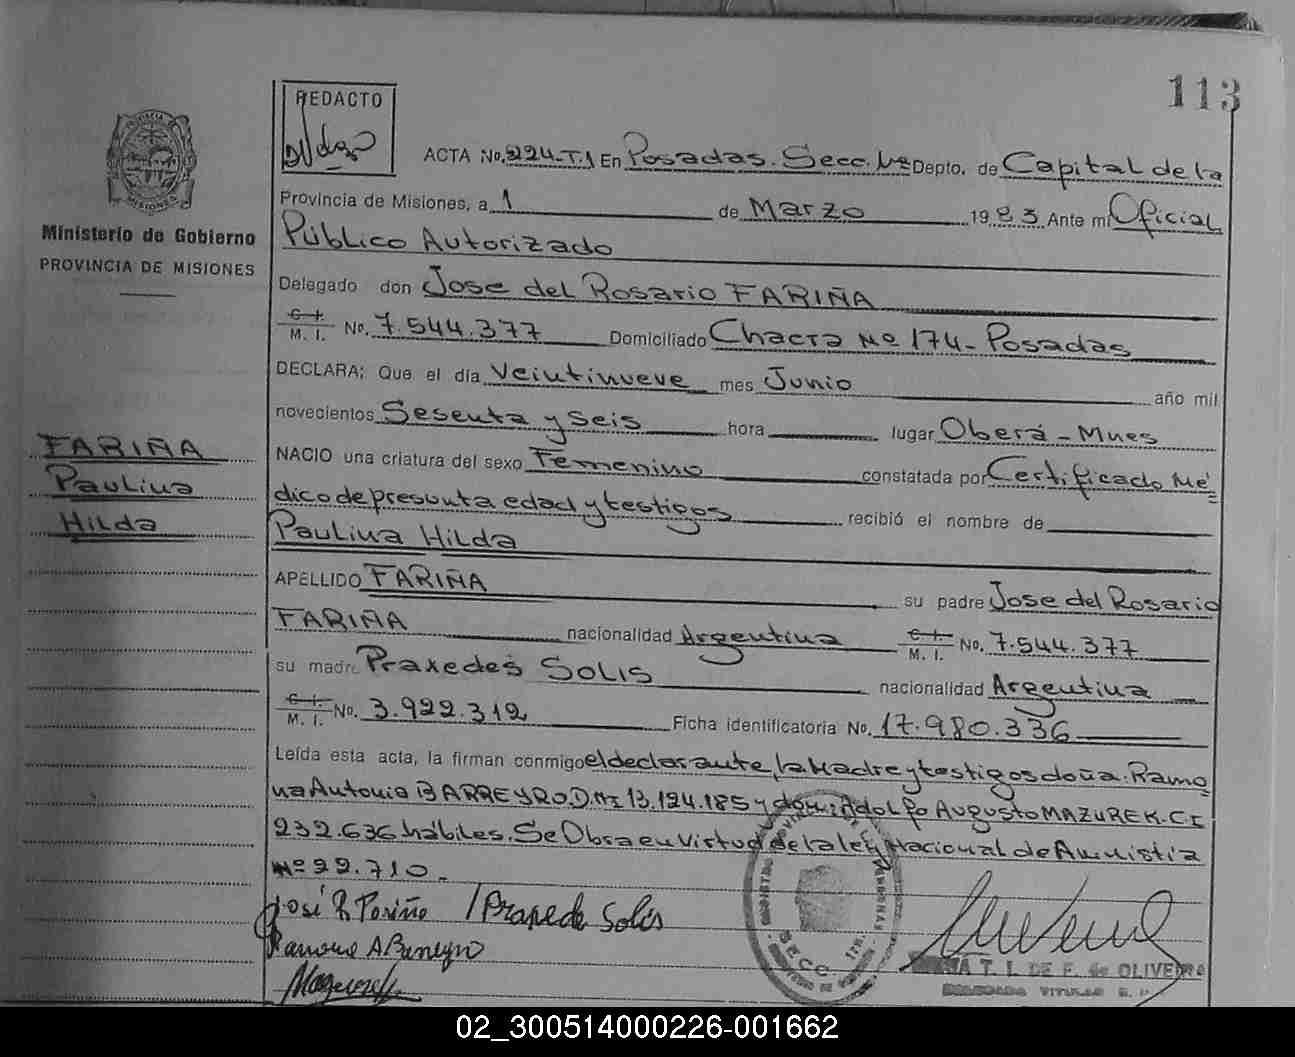 113
REDACTO
ACTA No. 224-T.1 En Posadas. Secc. 1ra Depto. de Capital de la
Provincia de Misiones, a 1 de Marzo 1983 Ante mi Oficial
Público Autorizado
Ministerio de Gobierno
PROVINCIA DE MISIONES
Delegado don Jose del Rosario FARIÑA
C. I.
M. I. No. 7.544.377 Domiciliado Chacra Nº 174 - Posadas
DECLARA: Que el día Veintinueve mes Junio año mil
novecientos Sesenta y Seis hora lugar Oberá - Mnes
FARIÑA
Paulina
Hilda
NACIO una criatura del sexo Femenino constatada por Certificado Mé=
dico de presunta edad y testigos recibió el nombre de
Paulina Hilda
APELLIDO FARIÑA su padre Jose del Rosario
FARIÑA nacionalidad Argentina C. I. M. I. No. 7.544.377
su madre Praxedes SOLIS nacionalidad Argentina
C. I.
M. I. No. 3.922.312 Ficha identificatoria No. 17.980.336
Leída esta acta, la firman conmigo el declarante, la Madre y testigos doña. Ramo=
na Antonia BARREYRO. D.N.I 13.124.185 y don: Adolfo Augusto MAZUREK. C I
232.636 hábiles. Se Obra en Virtud de la ley Nacional de Amnistia
nº 22.710.
José R Fariña Praxede Solis
Ramona A Barreyro
SECC. 1ra.
T. I. DE F. de OLIVEIRA
DELEGADA TITULAR
02_300514000226-001662